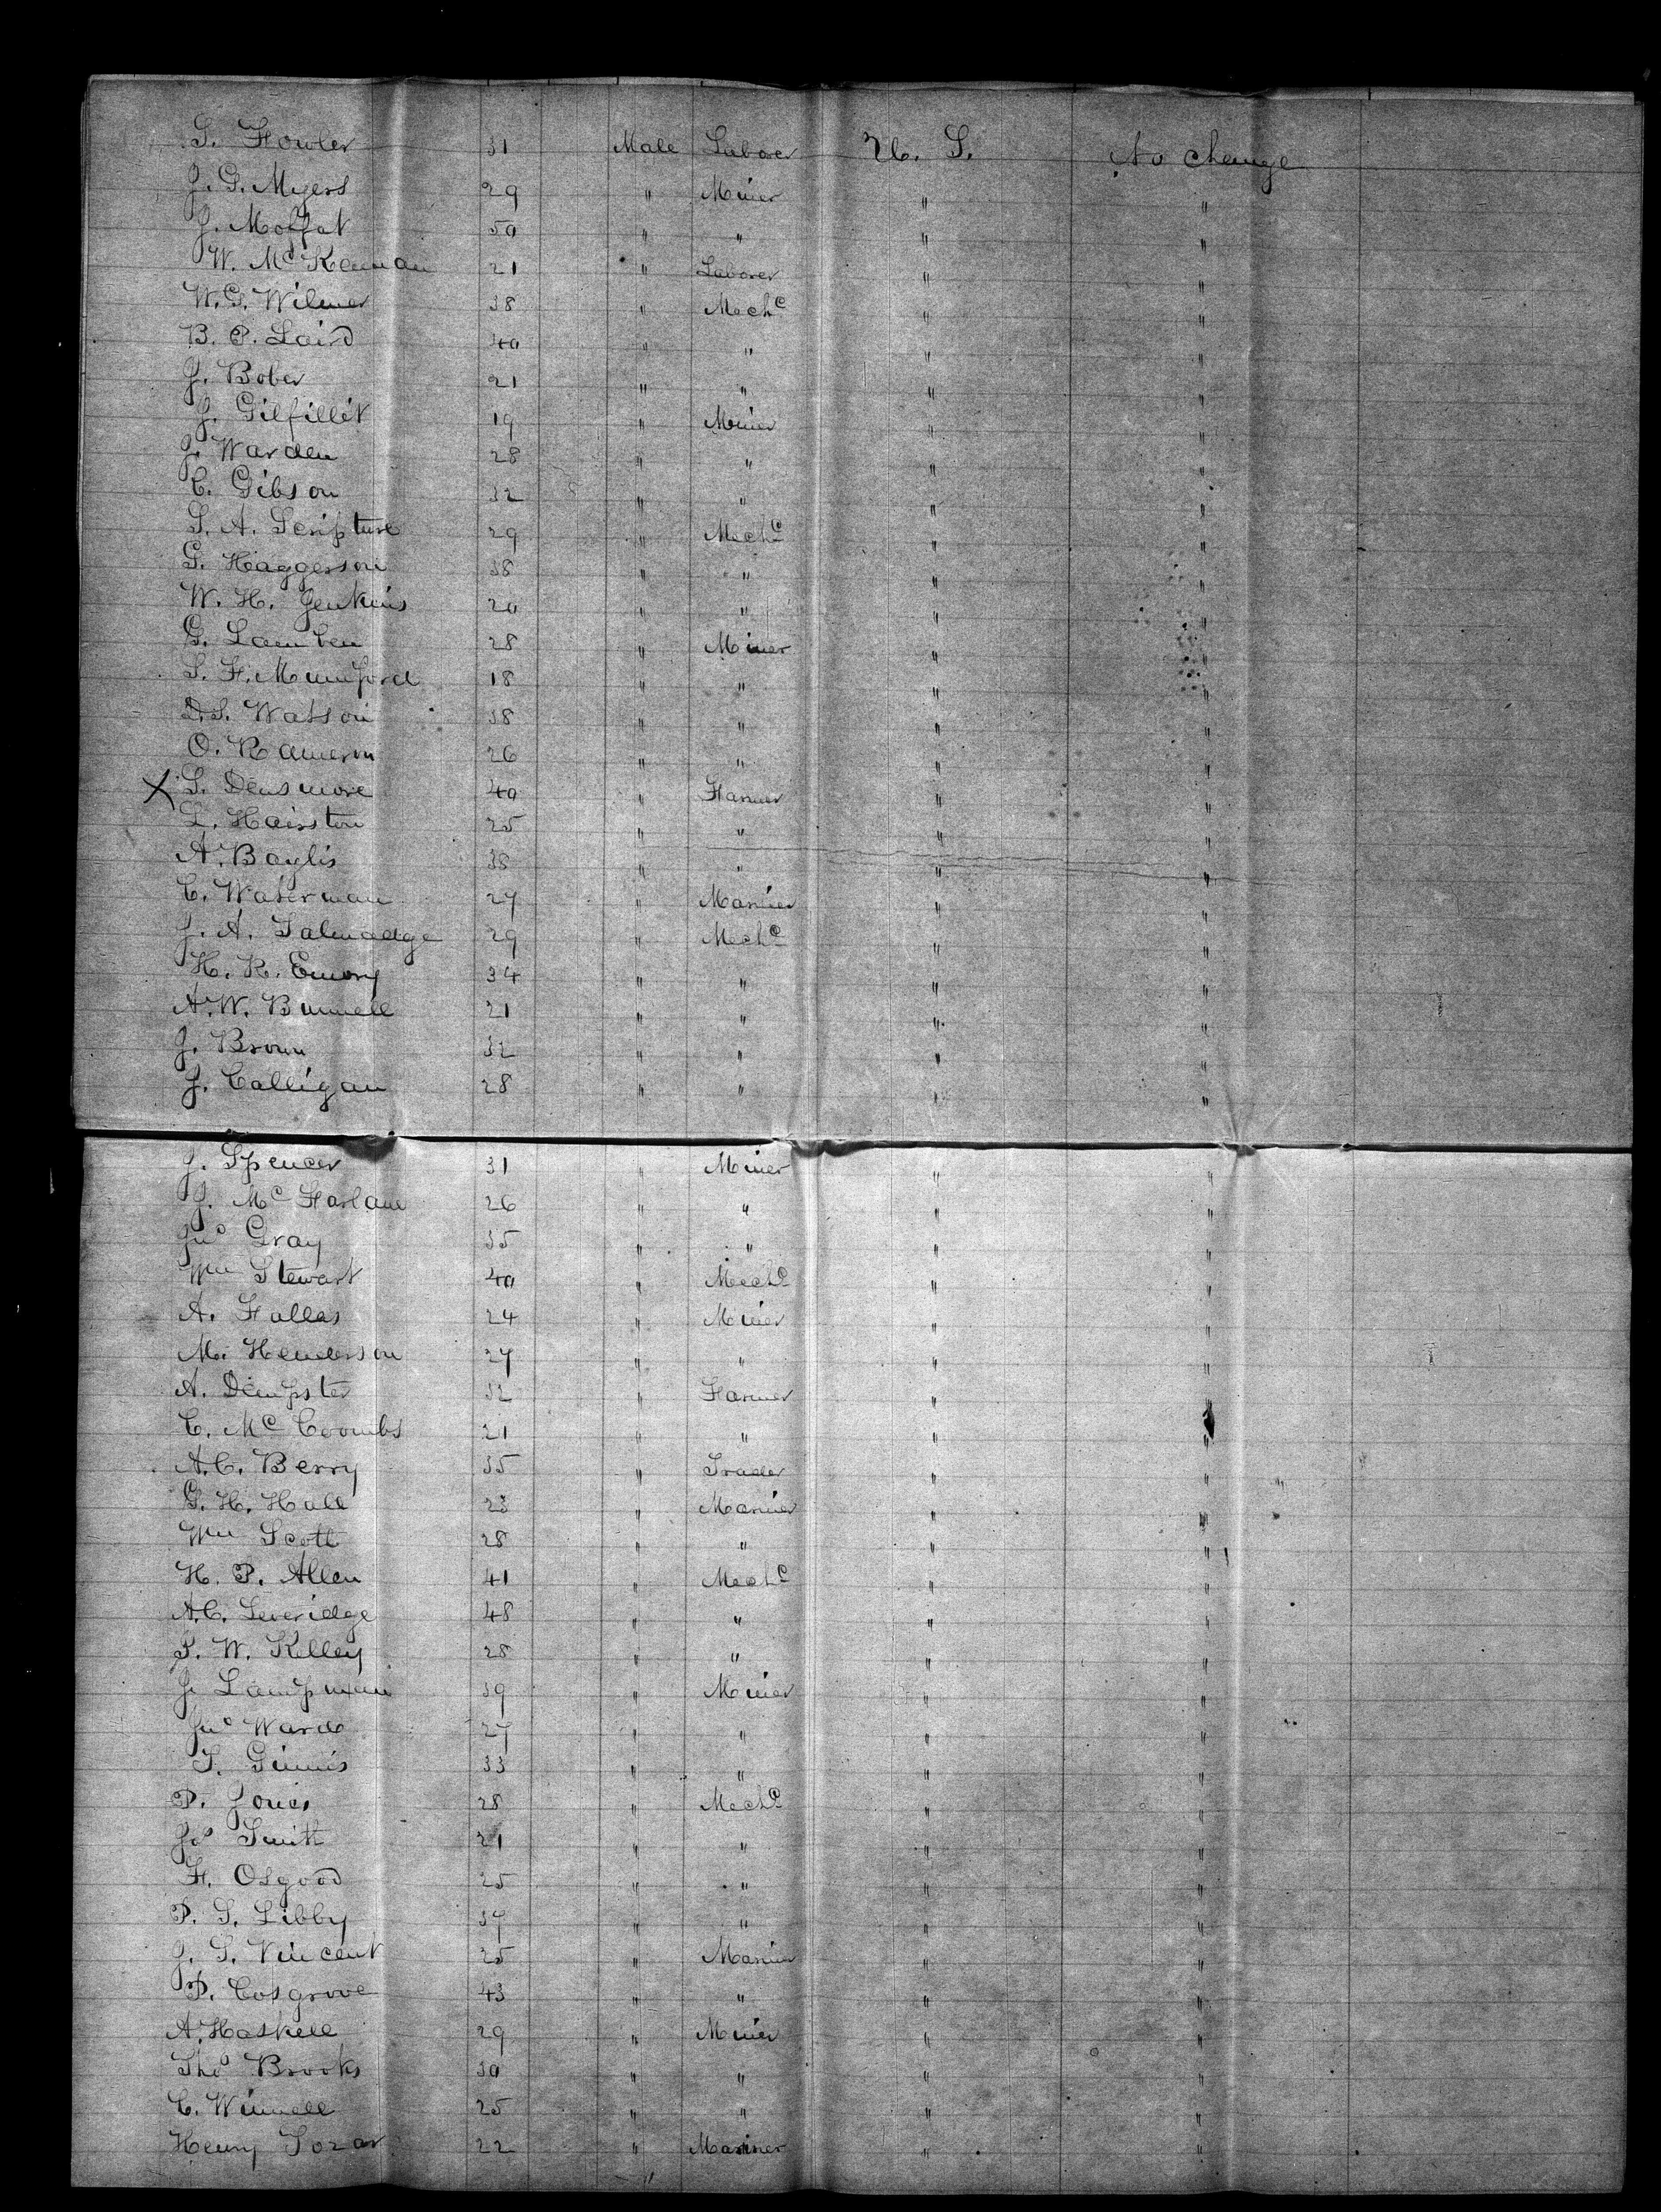 S. Fowler 31 Male Laborer U. S. No change
J. G. Myers 29 " Miner " "
J. Moffat 50 " " " "
W. McKennan 21 " Laborer " "
W. G. Wilmer 38 " Mechc " "
B. P. Laird 40 " " " "
J. Bober 21 " " " "
J. Gilfillit 19 " Miner " "
J. Warden 28 " " " "
C. Gibson 32 " " " "
S. A. Scripture 29 " Mechc " "
G. Haggerson 38 " " " "
W. H. Jenkins 20 " " " "
G. 28 " Miner " "
S. F. Mumford 18 " " " "
D. S. Watson 38 " " " "
O. Rameron 26 " " " "
X S. Densmore 40 " Farmer " "
L. Hairston 25 " " " "
A. Baylis 38 " " " "
C. Waterman 27 " Mariner " "
J. A. Talmadge 29 " Mechc " "
H. R. Emory 34 " " " "
A. W. Bunnell 21 " " " "
J. Brown 32 " " " "
J. Calligan 28 " " " "
J. Spencer 31 " Miner " "
J. McFarlane 26 " " " "
Jno Gray 35 " " " "
Wm Stewart 40 " Mechc " "
A. Fallas 24 " Miner " "
M. Henderson 27 " " " "
A. Dempster 32 " Farmer " "
C. McCoombs 21 " " " "
A. C. Berry 35 " Trader " "
G. H. Hall 23 " Mariner " "
Wm Scott 28 " " " "
H. P. Allen 41 " Mechc " "
A. C. Leveridge 48 " " " "
S. W. Kelley 28 " " " "
J. Lampman 39 " Miner " "
Jno Ward 27 " " " "
T. Ginnis 33 " " " "
P. Jones 28 " Mechc " "
Jos Smith 21 " " " "
F. Osgood 25 " " " "
P. S. Libby 37 " " " "
J. S. Vincent 25 " Mariner " "
P. Cosgrove 43 " " " "
A. Haskell 29 " Miner " "
Thos Brooks 30 " " " "
C. Winnell 25 " " " "
Henry Tozar 22 " Mariner " "
"